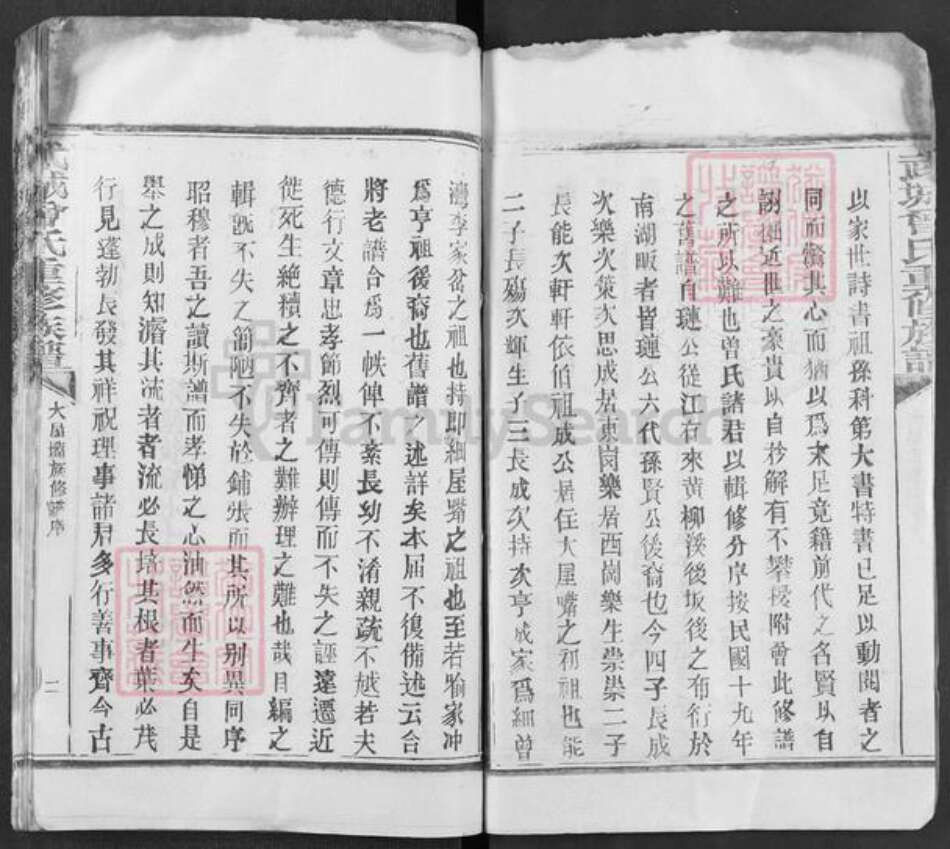 武城曾氏重修族譜
以家世詩書祖孫科第大書特書已足以動閱者之
同而獎其心而猶以爲末足竟籍前代之名賢以自
詡徇近世之豪貴以自矜解有不攀援附會此修譜
之所以難也曾氏諸君以輯修分序按民國十九年
之舊譜自璉公從江右來黃柳溪後坂後之布衍於
南湖畈者皆璉公六代孫賢公後裔也今四子長成
次樂次策次思成居東崗樂居西崗樂生崇崇二子
長能次軒軒依伯祖成公居住大屋嘴之初祖也能
二子長殤次輝生子三長成次持次亨成家爲細曾
灣李家岔之祖也持即細屋嘴之祖也至若喻家冲
爲亨祖後裔也舊譜之述詳矣本屆不復備述云合
將老譜合爲一帙俾不紊長幼不淆親疏不越若夫
德行文章忠孝節烈可傳則傳而不失之誣遠遷近
徙死生絶續之不齊者之難辦理之難也哉目編之
輯既不失之簡陋不失於鋪張而其所以别異同序
昭穆者吾之讀斯譜而孝悌之心油然而生矣自是
舉之成則知濬其流者者流必長培其根者葉必茂
行見蓬勃長發其祥祝理事諸君多行善事齊今古
武城曾氏重修族譜
大屋嘴族修譜序
二
FamilySearch